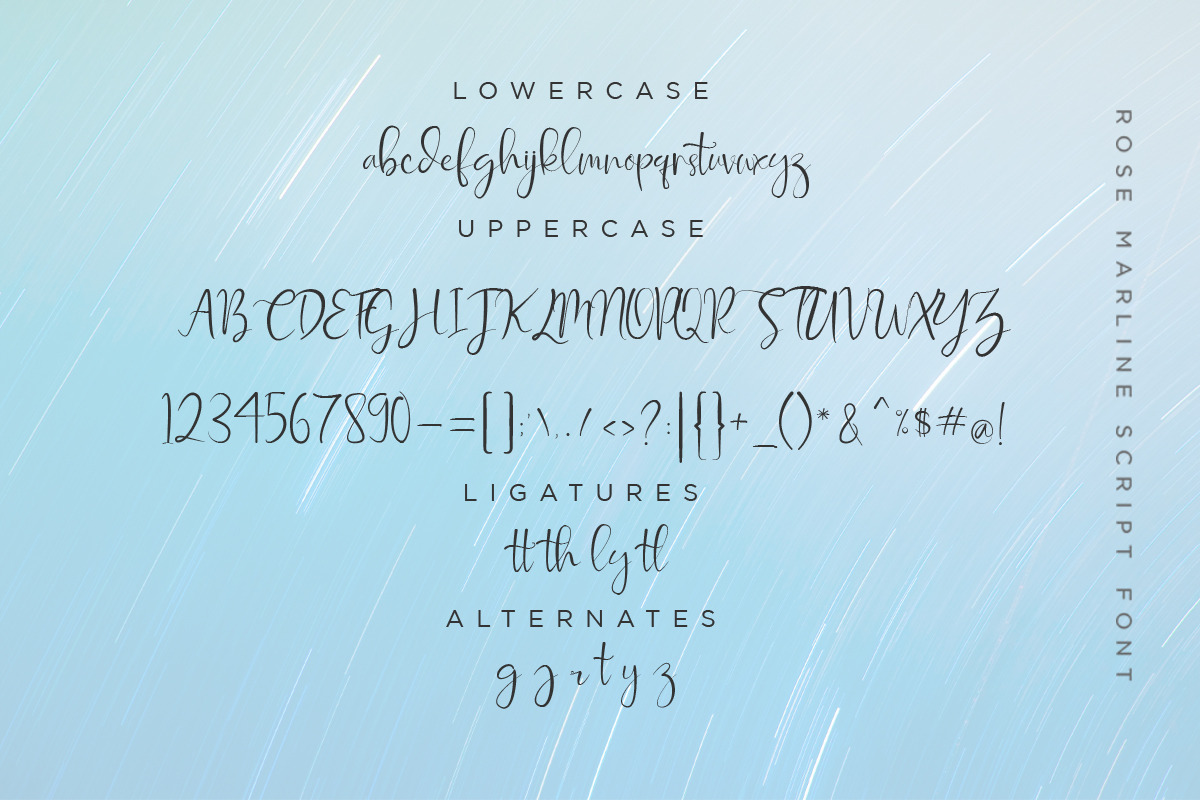 LOWERCASE
abcdefghijklmnopqrstuvwxyz
UPPERCASE
ABCDEFGHIJKLMNOPQRSTUVWXYZ
1234567890-=[];'\,./<>?:|{}+_()*&^%$#@!
LIGATURES
tt th ly tl
ALTERNATES
g j r t y z
ROSE MARLINE SCRIPT FONT